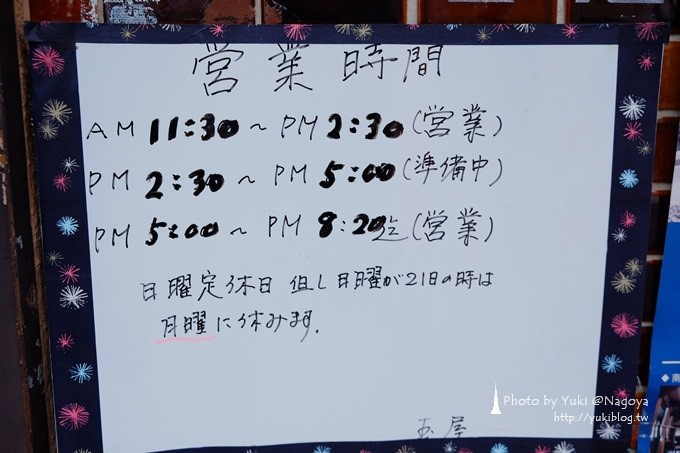 営業時間
AM 11:30 ~ PM 2:30 (営業)
PM 2:30 ~ PM 5:00 (準備中)
PM 5:00 ~ PM 8:20迄 (営業)
日曜定休日 但し日曜が21日の時は
月曜に休みます.
玉屋
◆南
Photo by Yuki @Nagoya
http://yukiblog.tw